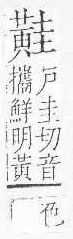 黊
戶圭切音
攜鮮明黃
色